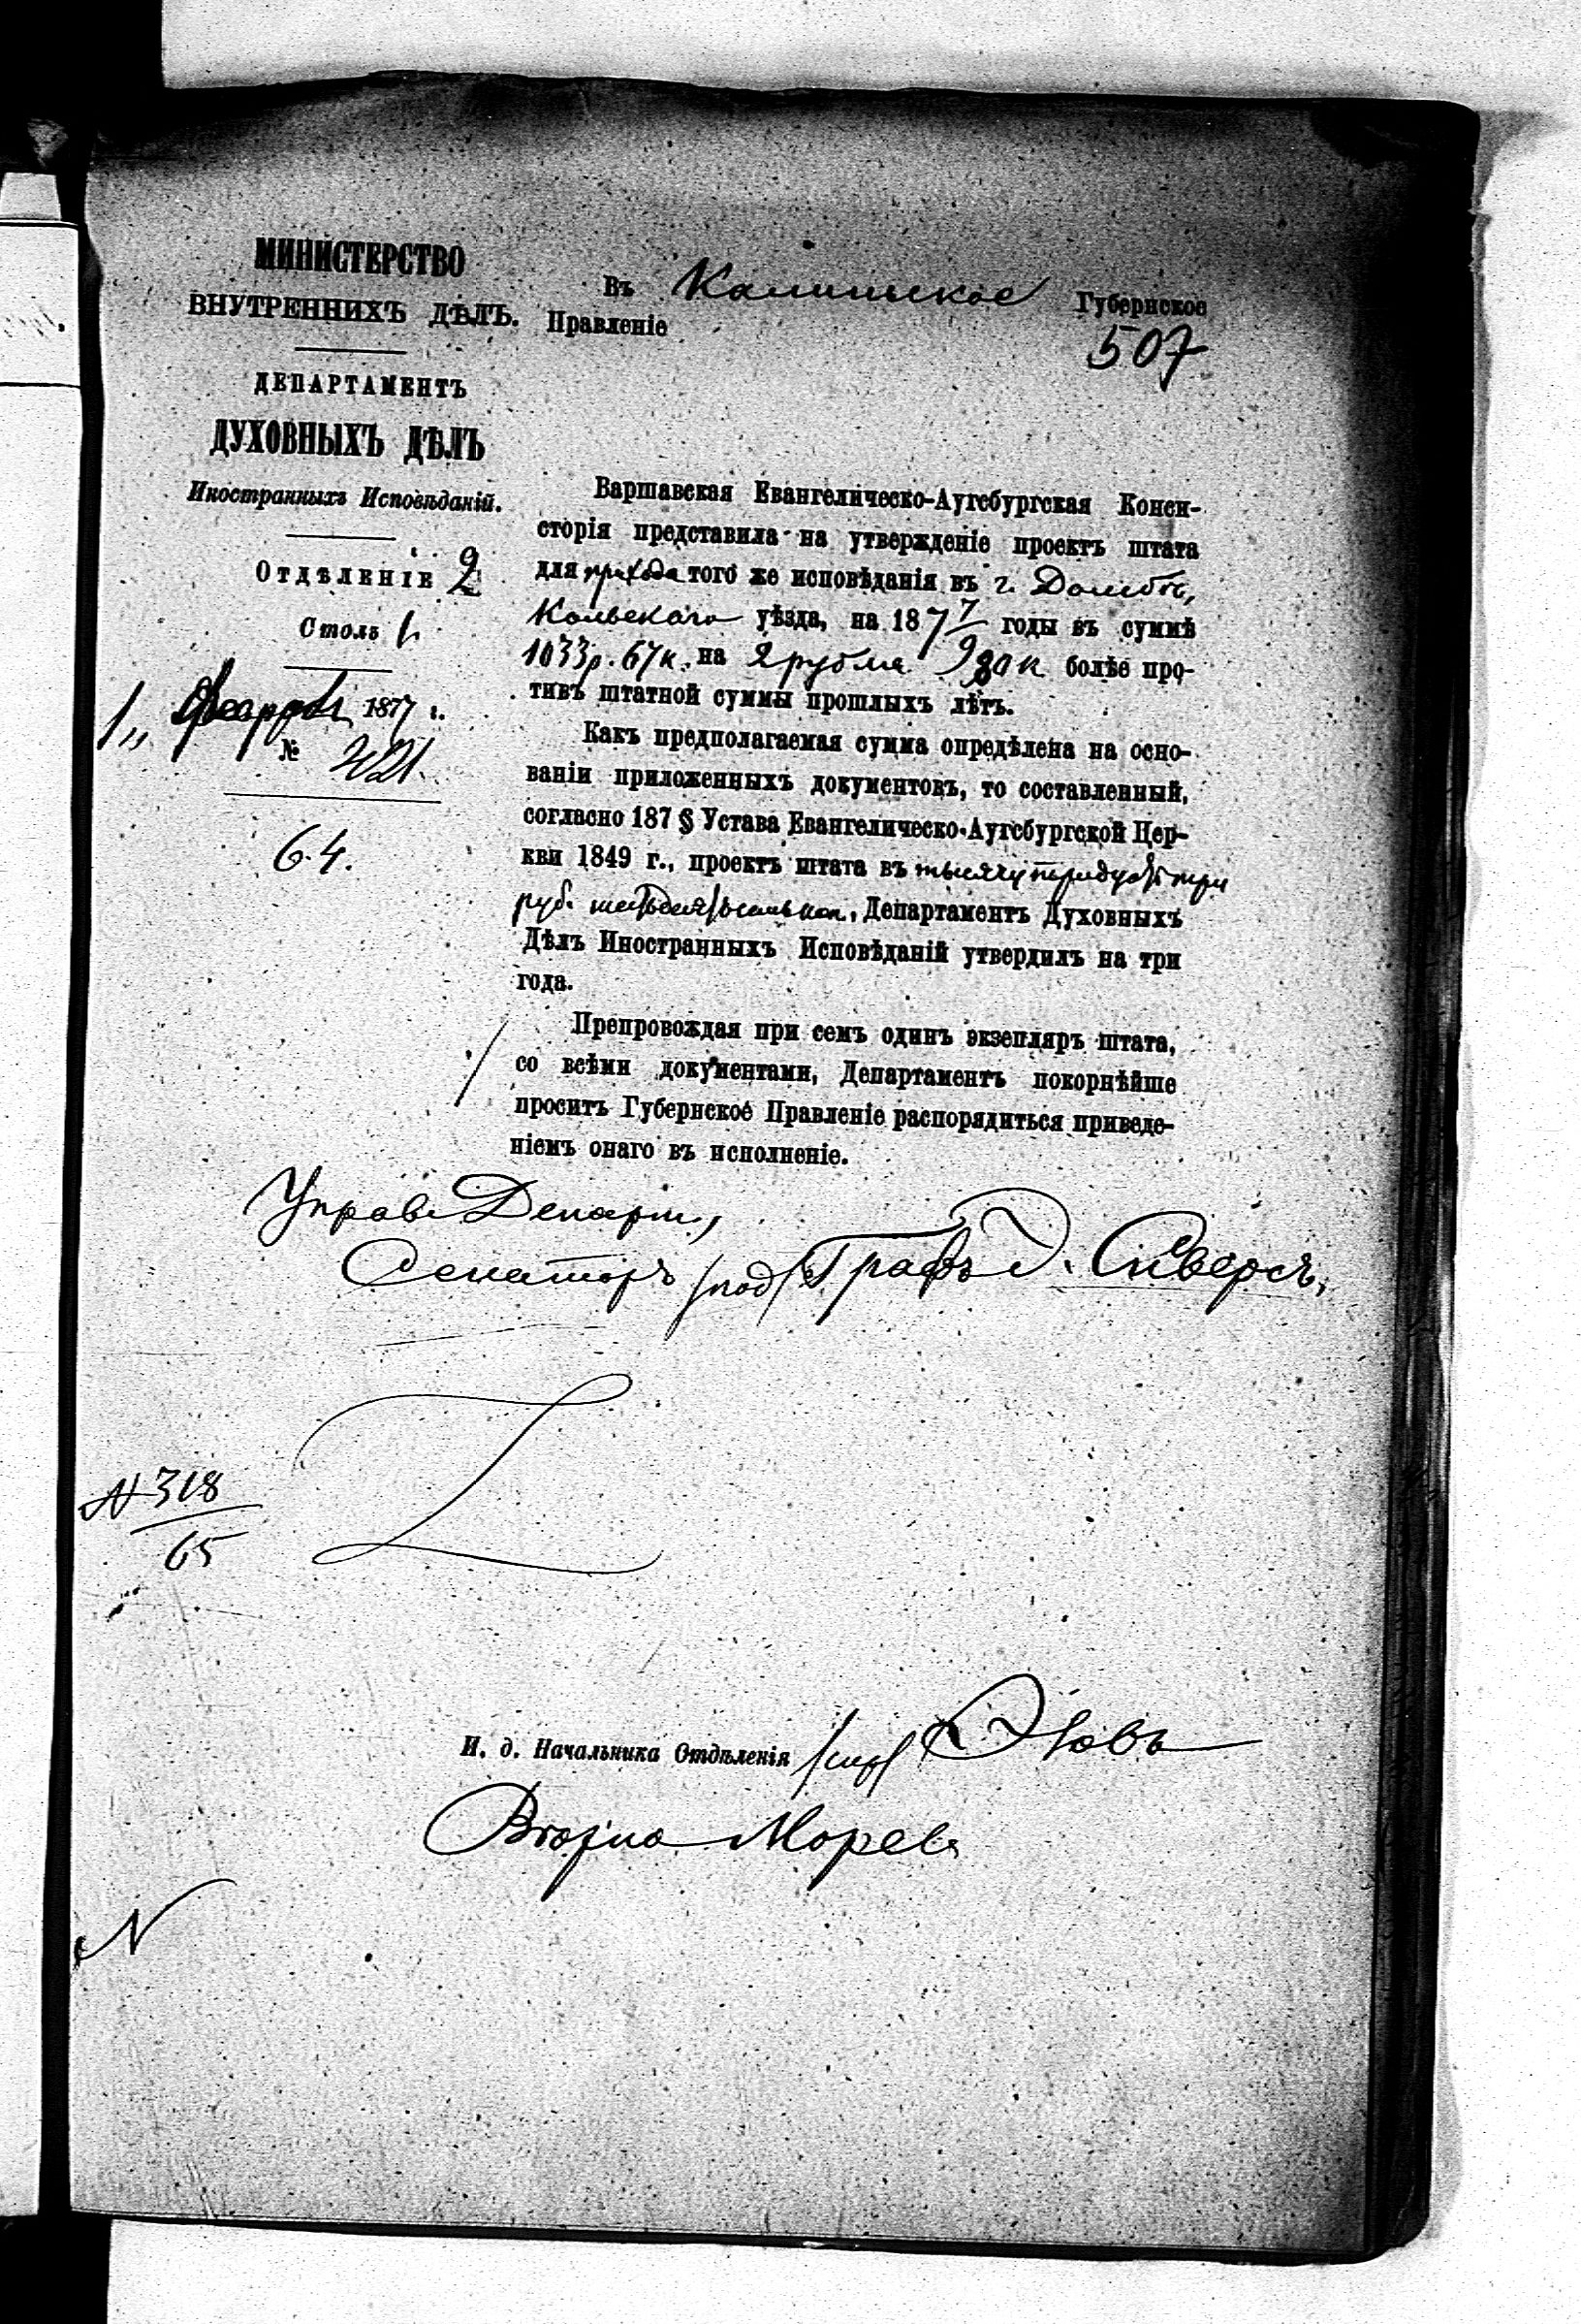 МИНИСТЕРСТВО
ВНУТРЕННИХЪ ДѢЛЪ.
ДЕПАРТАМЕНТЪ
ДУХОВНЫХЪ ДѢЛЪ
Иностранныхъ Исповѣданій.
Отдѣленіе 2
Столъ 1.
1„ Февраля 1877 г.
№ 421.
64.
Въ Калишское Губернское
Правленіе
507
Варшавская Евангелическо-Аугсбургская Конси-
сторія представила на утвержденіе проектъ штата
для прихода того же исповѣданія въ г. Домбѣ,
Кольскаго уѣзда, на 187 7/9 годы въ суммѣ
1033 р. 67 к. на 2 рубля 80 к болѣе про-
тивъ штатной суммы прошлыхъ лѣтъ.
Какъ предполагаемая сумма опредѣлена на осно-
ваніи приложенныхъ документовъ, то составленный,
согласно 187 § Устава Евангелическо-Аугсбургской Цер-
кви 1849 г., проектъ штата въ тысячу тридцать три
руб. шестьдесятъ семь коп. Департаментъ Духовныхъ
Дѣлъ Иностранныхъ Исповѣданій утвердилъ на три
года.
Препровождая при семъ одинъ экземпляръ штата,
со всѣми документами, Департаментъ покорнѣйше
проситъ Губернское Правленіе распорядиться приведе-
ніемъ онаго въ исполненіе.
Управ. Департ.,
Сенаторъ /под/ Графъ Э. Сиверсъ,
N 318
65
И. д. Начальника Отдѣленія
N